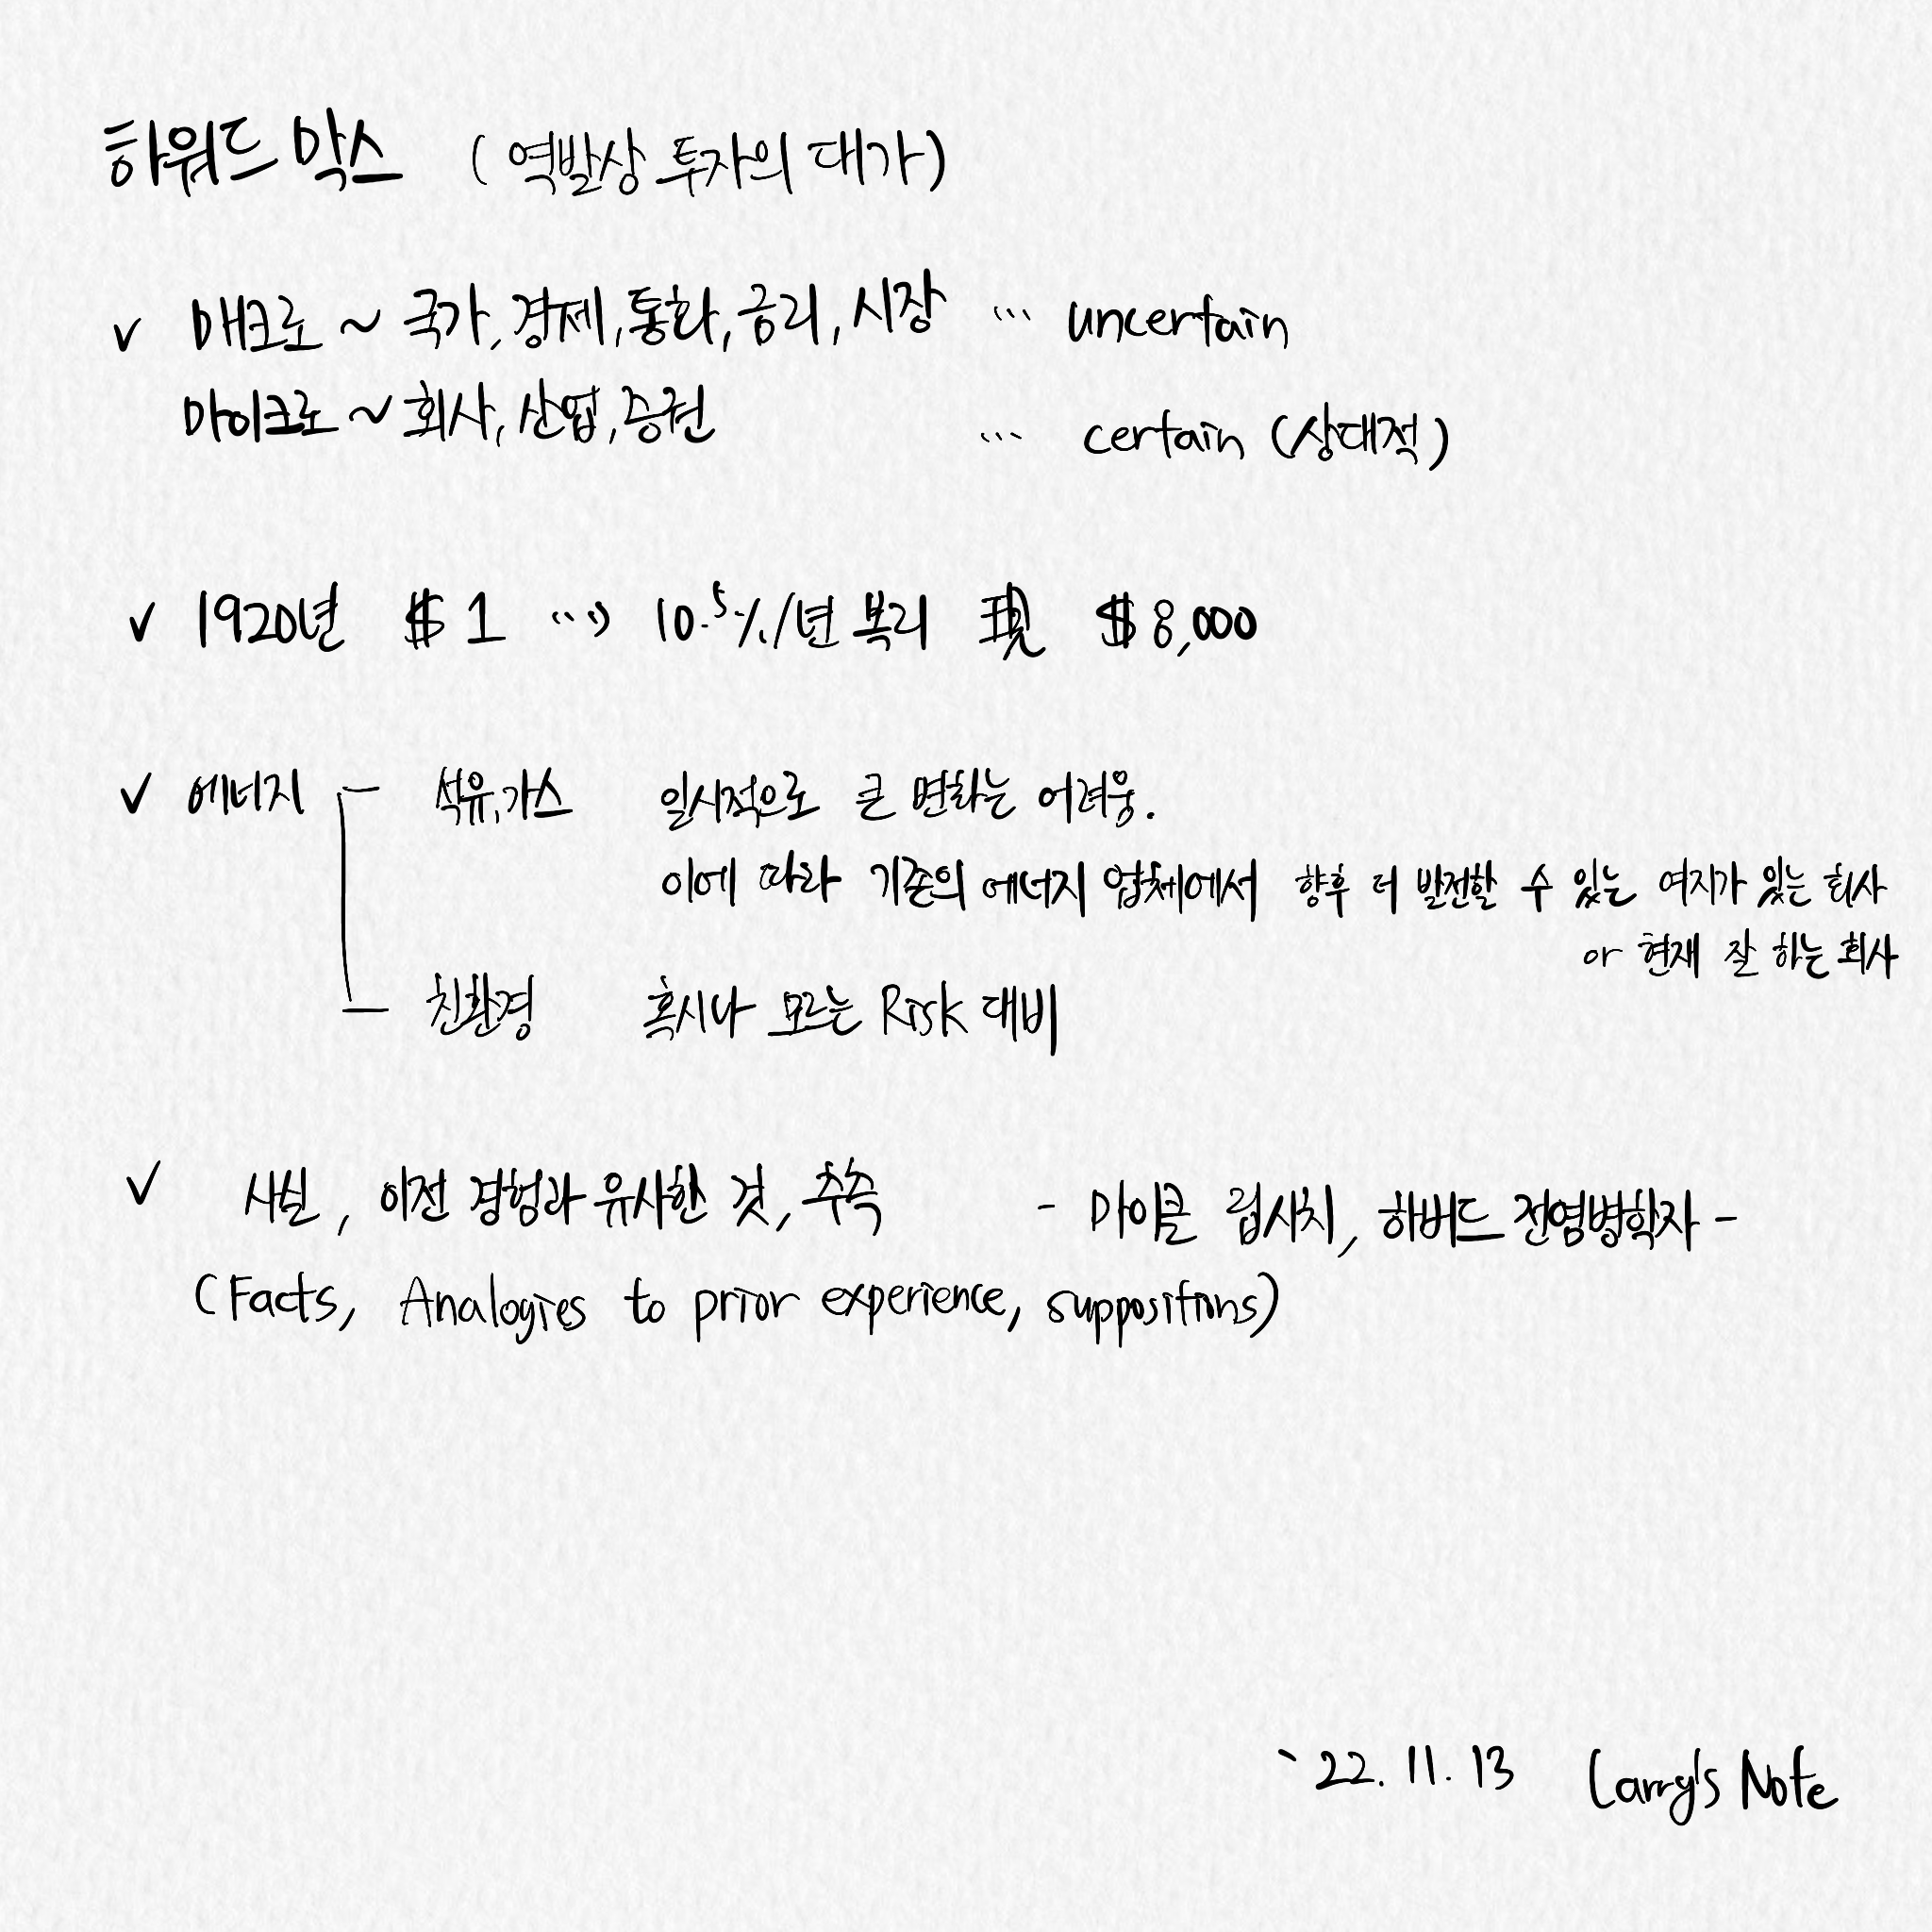 하워드 막스 (역발상 투자의 대가)
✓ 매크로 ~ 국가, 경제, 통화, 금리, 시장 … uncertain
마이크로 ~ 회사, 산업, 증권 … certain (상대적)
✓ 1920년 $1 … 10.5%/년 복리 現 $8,000
✓ 에너지 석유, 가스 일시적으로 큰 변화는 어려웅.
이에 따라 기존의 에너지 업체에서 향후 더 발전할 수 있는 여지가 있는 회사
or 현재 잘 하는 회사
친환경 혹시나 모르는 Risk 대비
✓ 사실, 이전 경험과 유사한 것, 추측 - 마이클 립시치, 하버드 전염병학자 -
(Facts, Analogies to prior experience, suppositions)
`22. 11. 13 Larry's Note